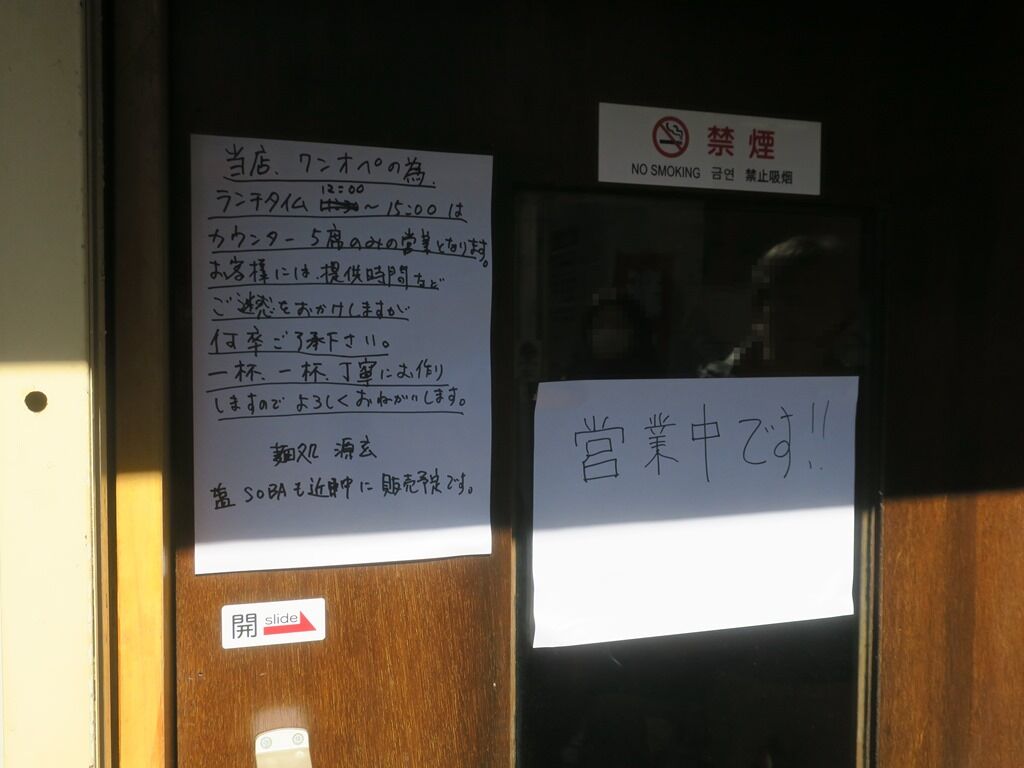 当店、ワンオペの為、
ランチタイム 12:00 ～ 15:00 は
カウンター 5席のみの営業となります。
お客様には、提供時間など
ご迷惑をおかけしますが
何卒ご了承下さい。
一杯、一杯、丁寧にお作り
しますので よろしくおねがいします。
麺処 源玄
塩 SOBAも近日中に 販売予定です。
禁煙
NO SMOKING 금연 禁止吸烟
営業中です!!
開 slide